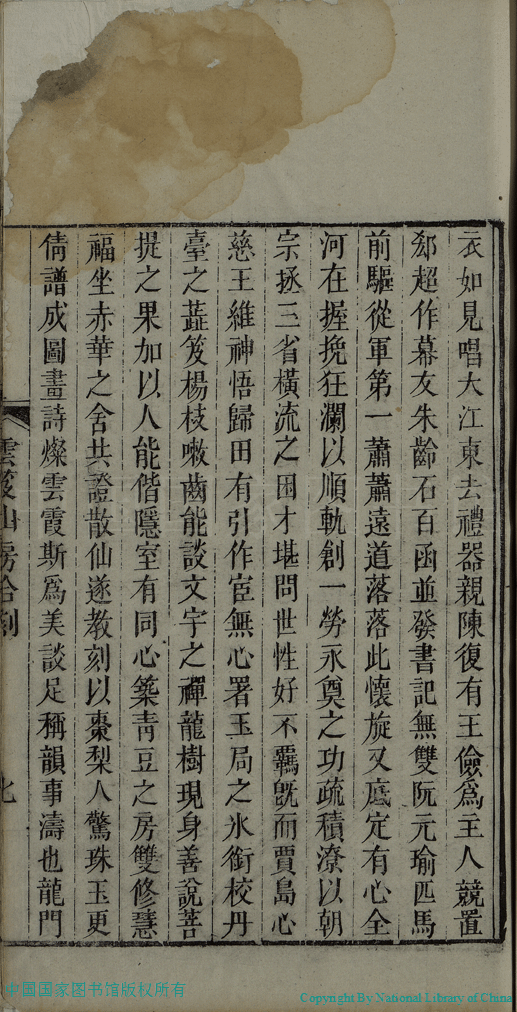 衣如見唱大江東去禮器親陳復有王儉爲主人競置
郄超作幕友朱齡石百函並發書記無雙阮元瑜匹馬
前驅從軍第一蕭蕭遠道落落此懷旋又底定有心全
河在握挽狂瀾以順軌創一勞永奠之功疏積潦以朝
宗拯三省橫流之困才堪問世性好不羈旣而賈島心
慈王維神悟歸田有引作宦無心署玉局之氷銜校丹
臺之蘂笈楊枝嗽齒能談文字之禪龍樹現身善說菩
提之果加以人能偕隱室有同心築靑豆之房雙修慧
福坐赤華之舍共證散仙遂教刻以棗梨人驚珠玉更
倩譜成圖畫詩燦雲霞斯爲美談足稱韻事濤也龍門
山房合刻
七
中国国家图书馆版权所有
Copyright By National Library of China